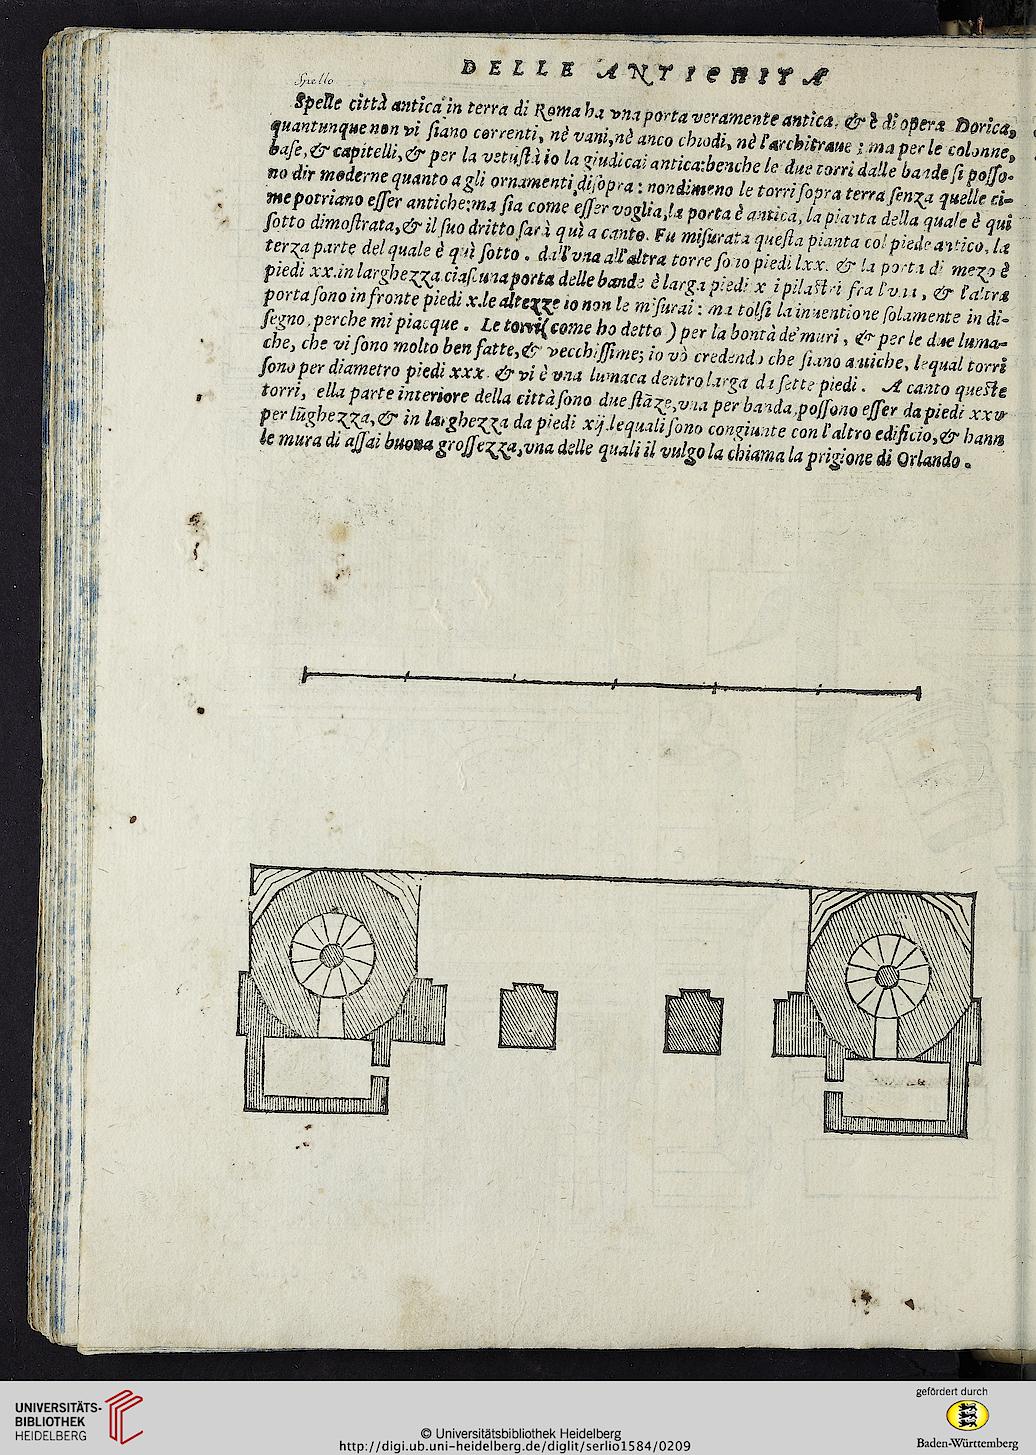 DELLE ANTICHITA
Spello
Spelle città antica in terra di Roma ha vna porta veramente antica, & è di opera Dorica,
quantunque non vi siano correnti, nè vani, nè anco chiodi, nè l'architraue; ma per le colonne,
base, & capitelli, & per la vetustà io la giudicai antica: benche le due torri dalle bande si posso-
no dir moderne quanto a gli ornamenti disopra: nondimeno le torri sopra terra senza quelle ci-
me potriano esser antiche: ma sia come esser voglia, la porta è antica, la pianta della quale è qui
sotto dimostrata, & il suo dritto sarà quì a canto. Fu misurata questa pianta col piede antico, la
terza parte del quale è quì sotto. dall'vna all'altra torre sono piedi lxx. & la porta di mezo è
piedi xx. in larghezza ciascuna porta delle bande è larga piedi x i pilastri fra l'vna, & l'altra
porta sono in fronte piedi x. le altezze io non le misurai: ma tolsi la inuentione solamente in di-
segno, perche mi piacque. Le torri (come ho detto) per la bontà de' muri, & per le due luma-
che, che vi sono molto ben fatte, & vecchissime; io vò credendo che siano antiche, lequal torri
sono per diametro piedi xxx. & vi è vna lumaca dentro larga da sette piedi. A canto queste
torri, ella parte interiore della città sono due stãze, vna per banda, possono esser da piedi xxv
per lũghezza, & in larghezza da piedi xij. lequali sono congiunte con l'altro edificio, & hann
le mura di assai buona grossezza, vna delle quali il vulgo la chiama la prigione di Orlando.
UNIVERSITÄTS-
BIBLIOTHEK
HEIDELBERG
© Universitätsbibliothek Heidelberg
http://digi.ub.uni-heidelberg.de/diglit/serlio1584/0209
gefördert durch
Baden-Württemberg